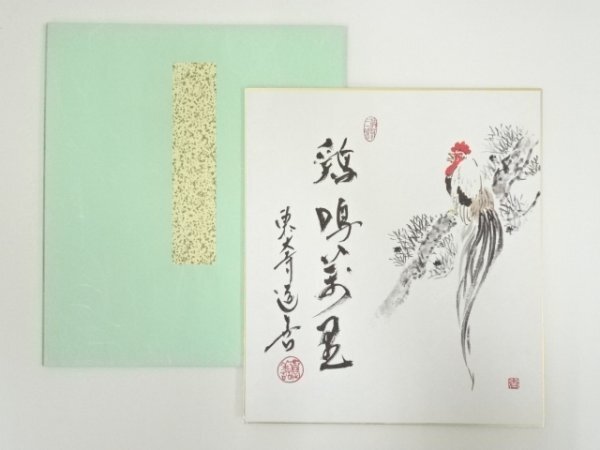 鶏鳴萬里
東大寺道善